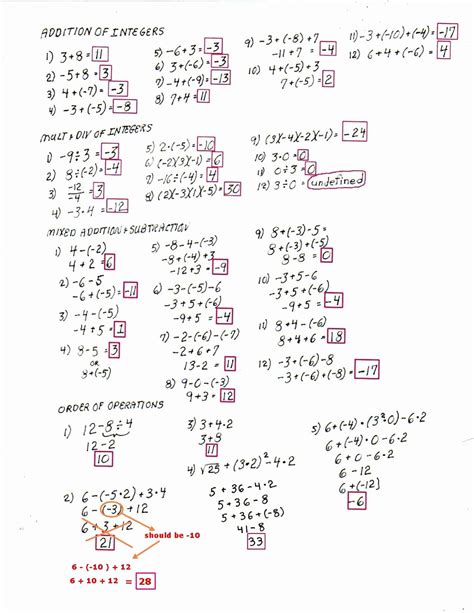 ADDITION OF INTEGERS
1) 3+8 = 11
2) -5+8 = 3
3) 4+(-7) = -3
4) -3+(-5) = -8
5) -6+3 = -3
6) 3+(-6) = -3
7) -4+(-9) = -13
8) 7+4 = 11
9) -3+(-8)+7
-11+7 = -4
10) 4+(-5)+3
7+(-5) = 2
11) -3+(-10)+(-4) = -17
12) 6+4+(-6) = 4
MULT & DIV OF INTEGERS
1) -9÷3 = -3
2) 8÷(-2) = -4
3) -12/-4 = 3
4) -3·4 = -12
5) 2·(-5) = -10
6) (-2)(3)(-1) = 6
7) -16÷(-4) = 4
8) (2)(-3)(1)(-5) = 30
9) (3)(-4)(-2)(-1) = -24
10) 3·0 = 0
11) 0÷3 = 0
12) 3÷0 = undefined
MIXED ADDITION & SUBTRACTION
1) 4-(-2)
4+2 = 6
2) -6-5
-6+(-5) = -11
3) -4-(-5)
-4+5 = 1
4) 8-5 = 3
OR
8+(-5)
5) -8-4-(-3)
-8+(-4)+3
-12+3 = -9
6) -3-(-5)-6
-3+5+(-6)
-9+5 = -4
7) -2-(-6)-(-7)
-2+6+7
13-2 = 11
8) 9-0-(-3)
9+3 = 12
9) 8+(-3)-5
8+(-3)+(-5)
8-8 = 0
10) -3+5-6
-3+5+(-6)
-9+5 = -4
11) 8-(-4)-(-6)
8+4+6 = 18
12) -3+(-6)-8
-3+(-6)+(-8) = -17
ORDER OF OPERATIONS
1) 12-8÷4
12-2
10
2) 6-(-5·2)+3·4
6-(-3)+12
6+3+12
21
should be -10
6 - (-10 ) + 12
6 + 10 + 12 = 28
3) 3+4·2
3+8
11
4) √25 + (3·2)² - 4·2
5+36-4·2
5+36-8
5+36+(-8)
41-8
33
5) 6+(-4)·(3²·0)-6·2
6+(-4)·0-6·2
6+0-6·2
6-12
6+(-12)
-6